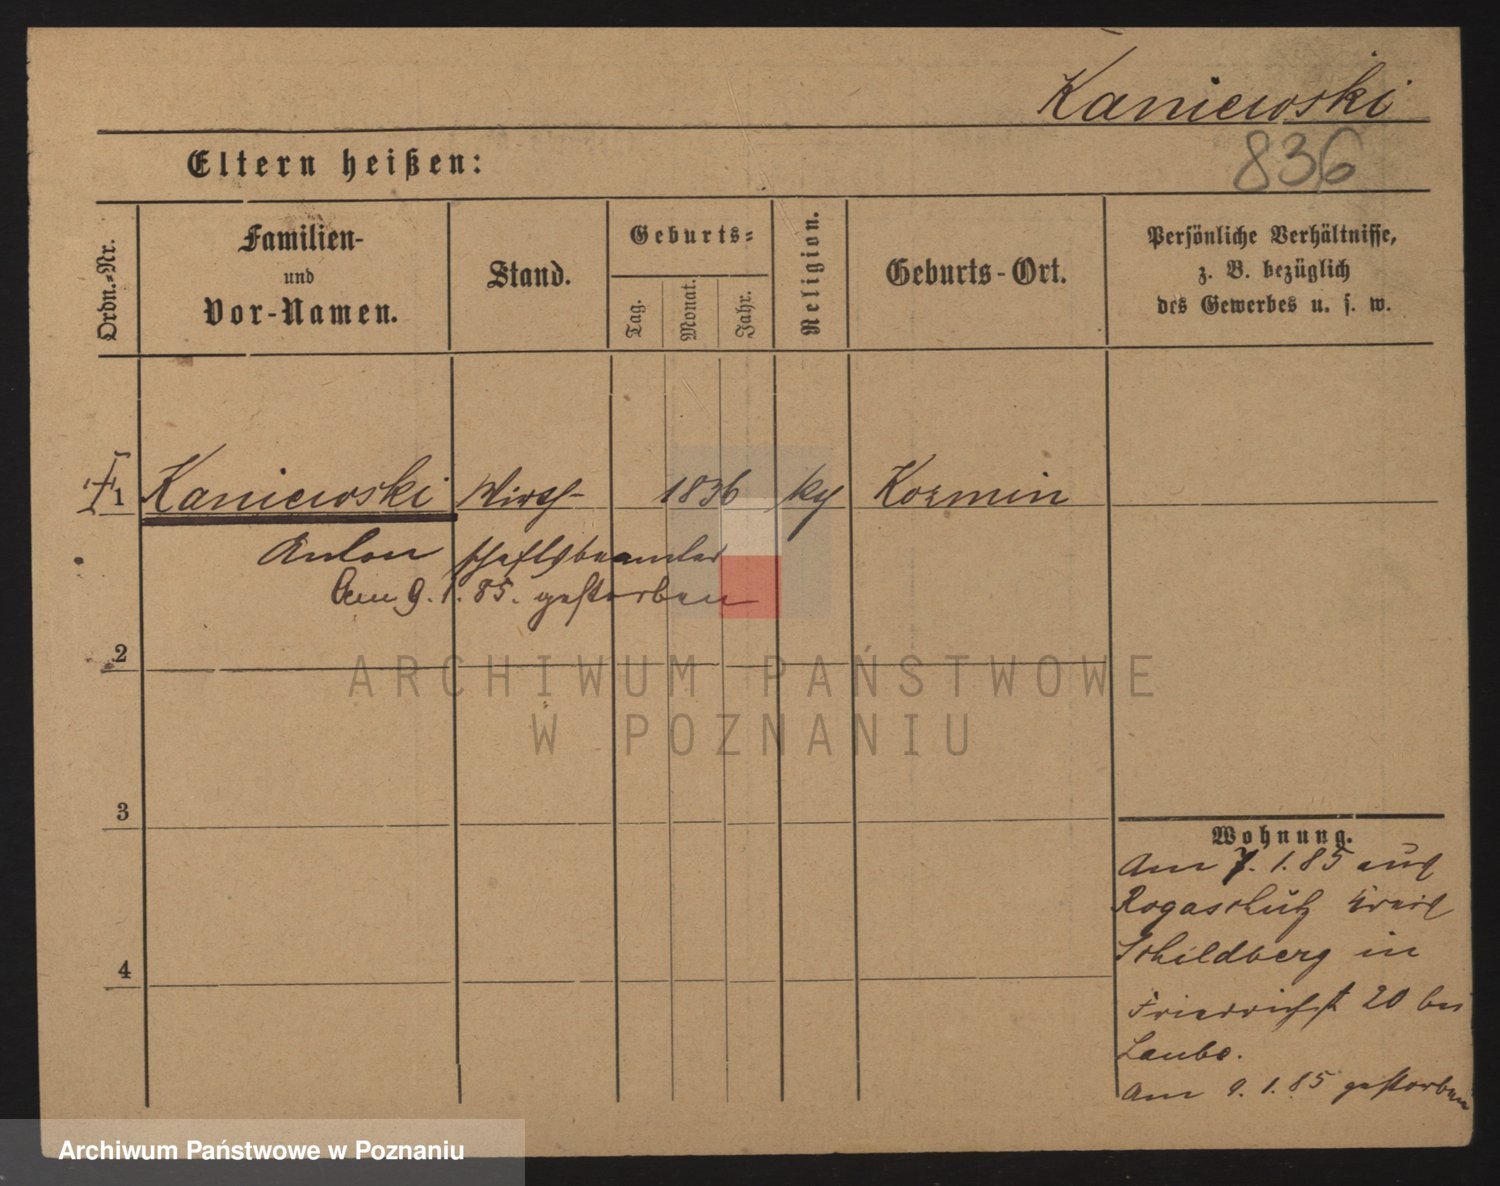 Kaniewski
Eltern heißen:
836
Ordn.-Nr.
Familien-
und
Vor-Namen.
Stand.
Geburts-
Tag.
Monat.
Jahr.
Religion.
Geburts-Ort.
Persönliche Verhältnisse,
z. B. bezüglich
des Gewerbes u. s. w.
1 Kaniewski Wirth- 1836 Kozmin
Anton schaftsbeamter
Am 9.1.85. gestorben
2
ARCHIWUM PAŃSTWOWE
W POZNANIU
3
Wohnung.
Am 7.1.85 aus
Rogaschütz Kreis
Schildberg in
Friedrichst 20 bei
Laube.
4
Am 9.1.85 gestorben
Archiwum Państwowe w Poznaniu